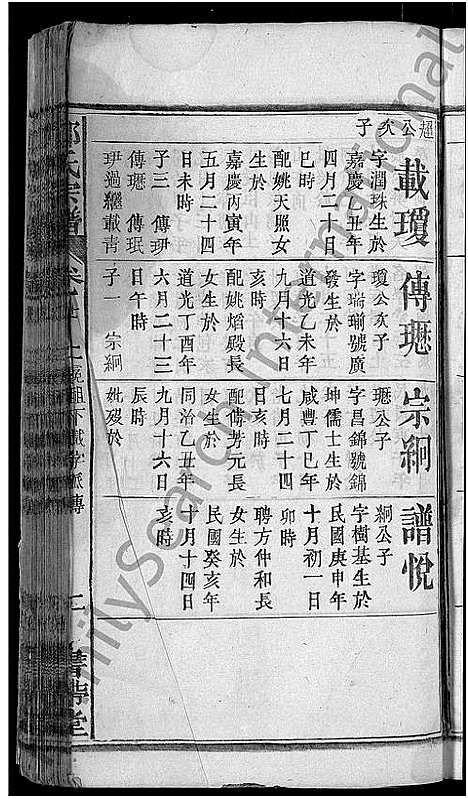 超公次子
載瓊
字潤珠生於
嘉慶乙丑年
四月二十日
巳時
配姚天照女
生於
嘉慶丙寅年
五月二十四
日未時
子三 傳玾
傳瑽 傳珉
玾過繼載青
傳瑽
瓊公次子
字瑞瑜號廣
發生於
道光乙未年
九月十六日
亥時
配姚熖殿長
女生於
道光丁酉年
六月二十三
日午時
子一 宗絅
宗絅
瑽公子
字昌錦號錦
坤儒士生於
咸豐丁巳年
七月二十四
日亥時
配傅芳元長
女生於
同治乙丑年
九月十六日
辰時
妣歿於
譜悅
絅公子
字樹基生於
民國庚申年
十月初一日
卯時
聘方仲和長
女生於
民國癸亥年
十月十四日
亥時
氏宗譜
FamilySearch International